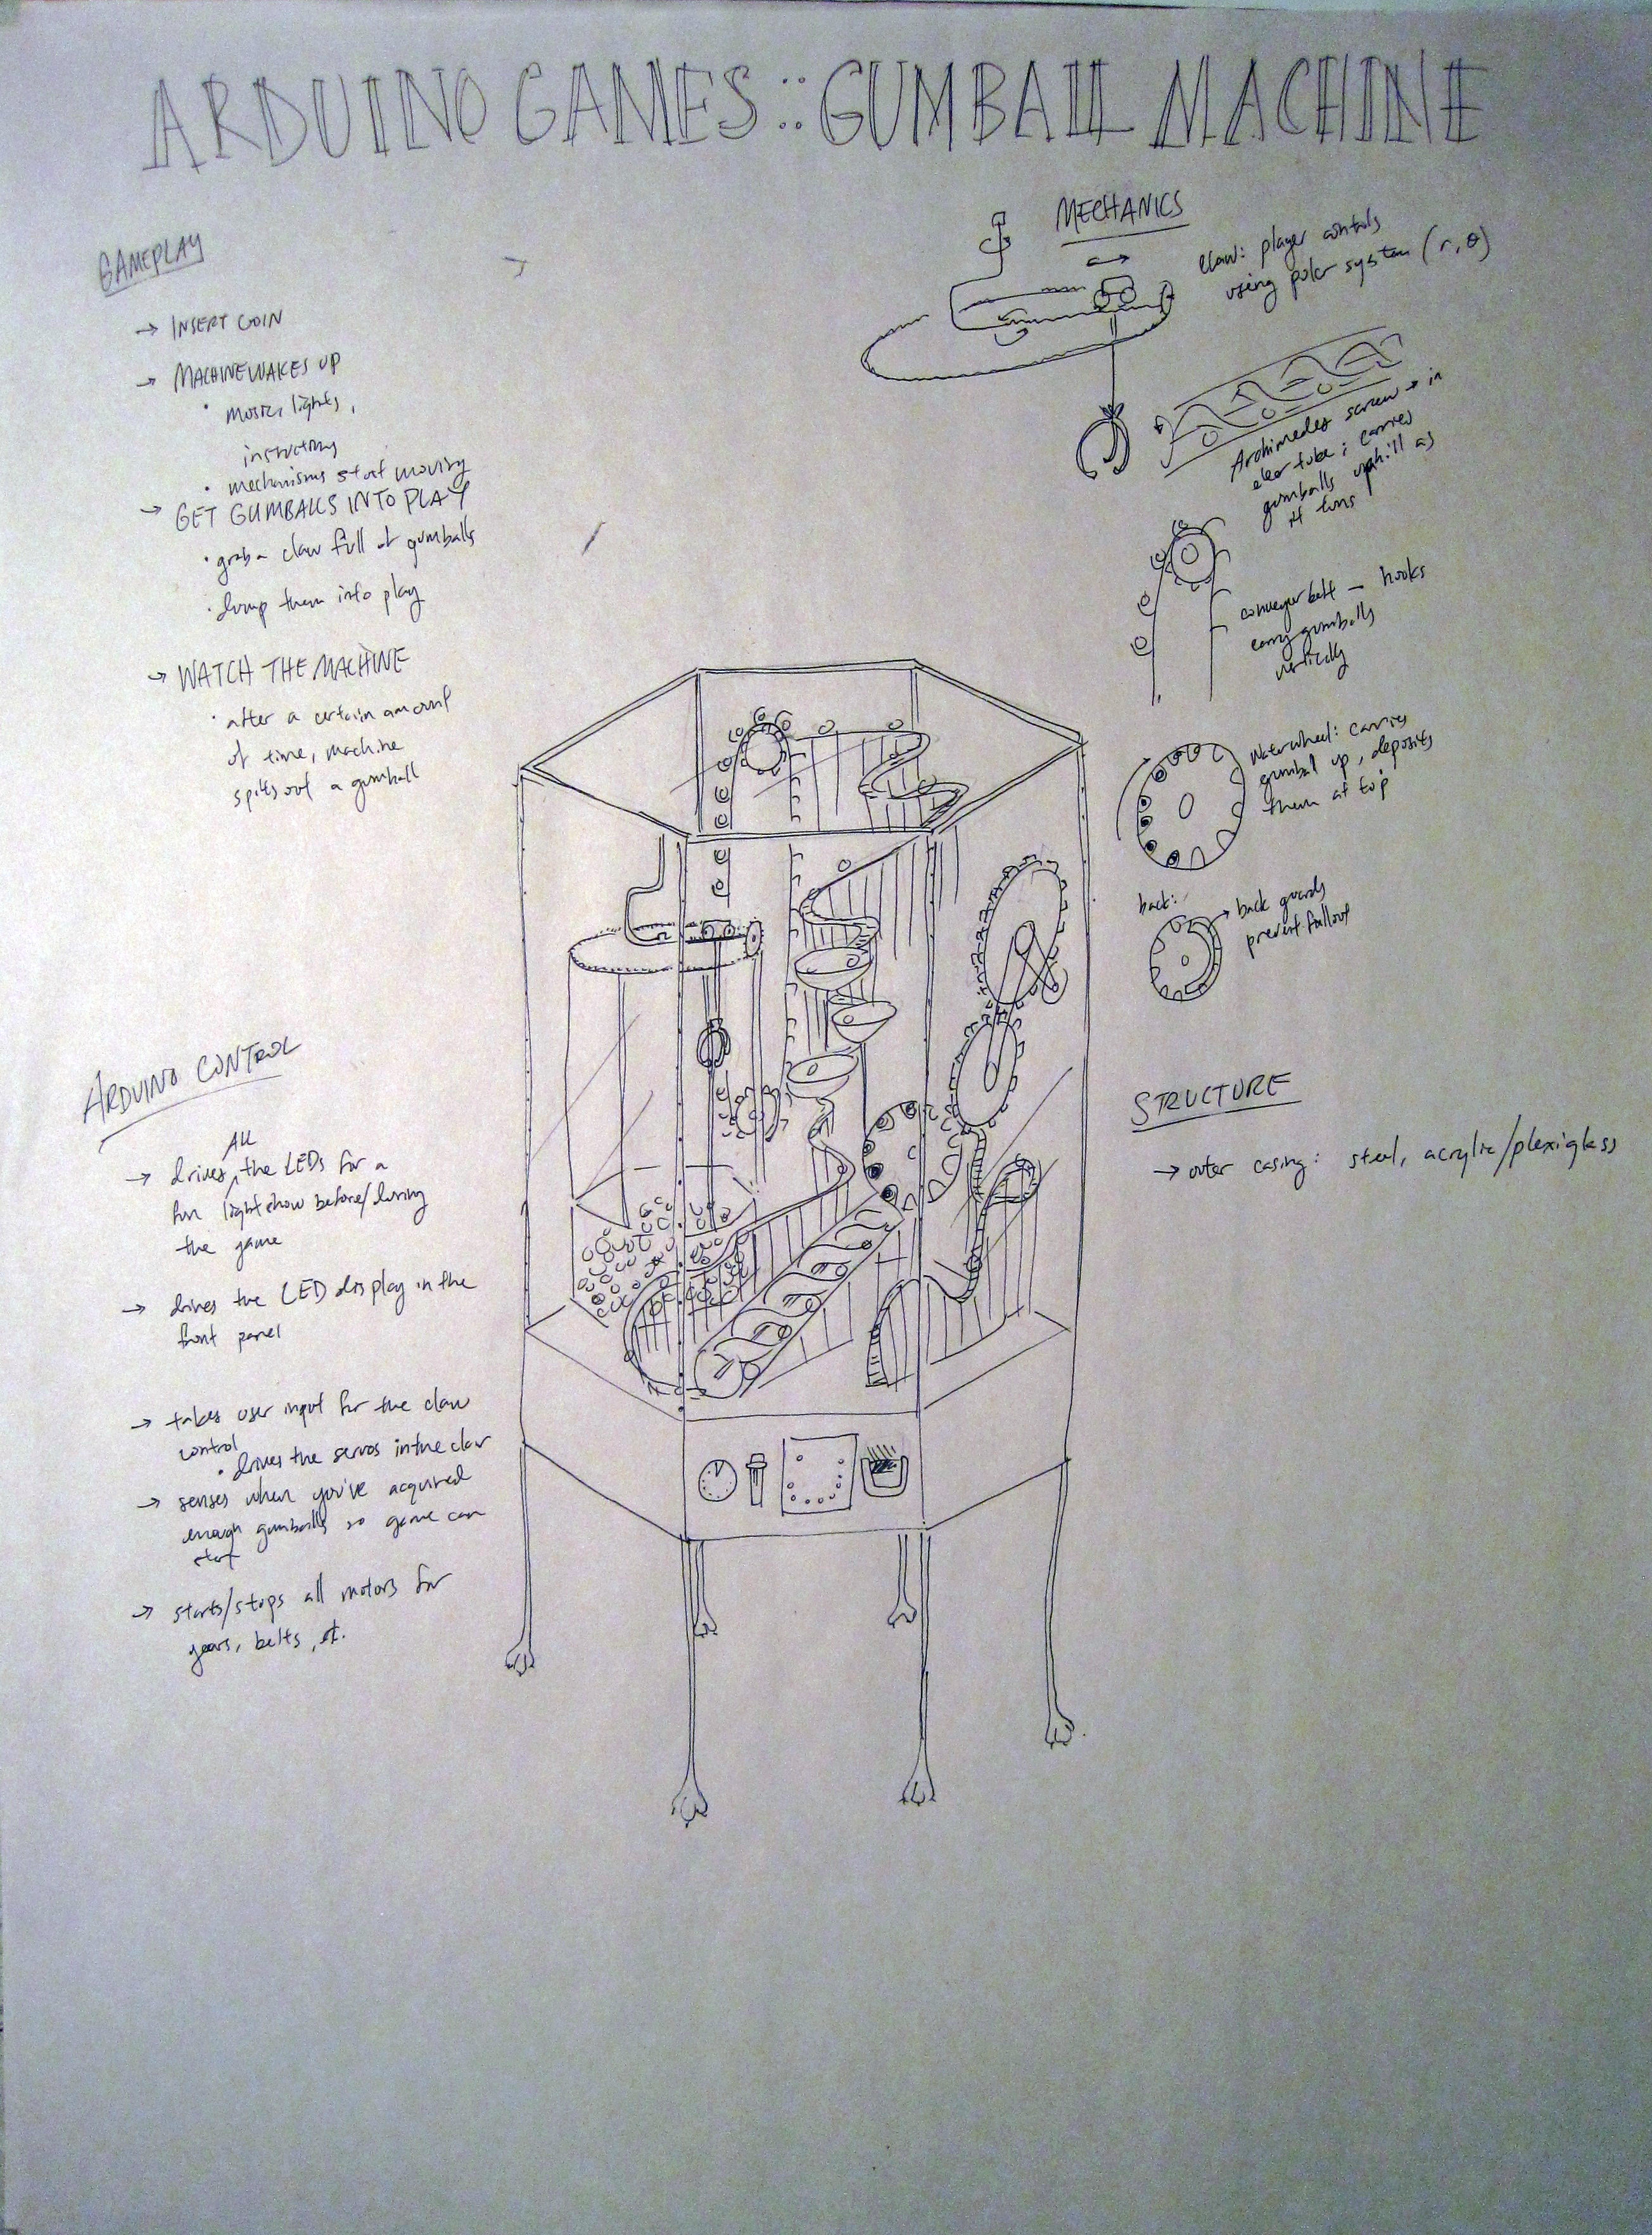 ARDUINO GAMES :: GUMBALL MACHINE
GAMEPLAY
→ INSERT COIN
→ MACHINE WAKES UP
• music, lights,
instructions
• mechanisms start moving
→ GET GUMBALLS INTO PLAY
• grab a claw full of gumballs
• dump them into play
→ WATCH THE MACHINE
• after a certain amount
of time, machine
spits out a gumball
ARDUINO CONTROL
All
→ drives ^ the LEDs for a
fun lightshow before/during
the game
→ drives the LED display in the
front panel
→ takes user input for the claw
control
• drives the servos in the claw
→ senses when you've acquired
enough gumballs so game can
start
→ starts/stops all motors for
gears, belts, et.
MECHANICS
claw: player controls
using polar system (r, θ)
Archimedes screw → in
clear tube; carries
gumballs uphill as
it turns
conveyer belt — hooks
carry gumballs
vertically
Waterwheel: carries
gumball up, deposits
them at top
back:
→ back guards
prevent fallout
STRUCTURE
→ outer casing: steel, acrylic/plexiglass